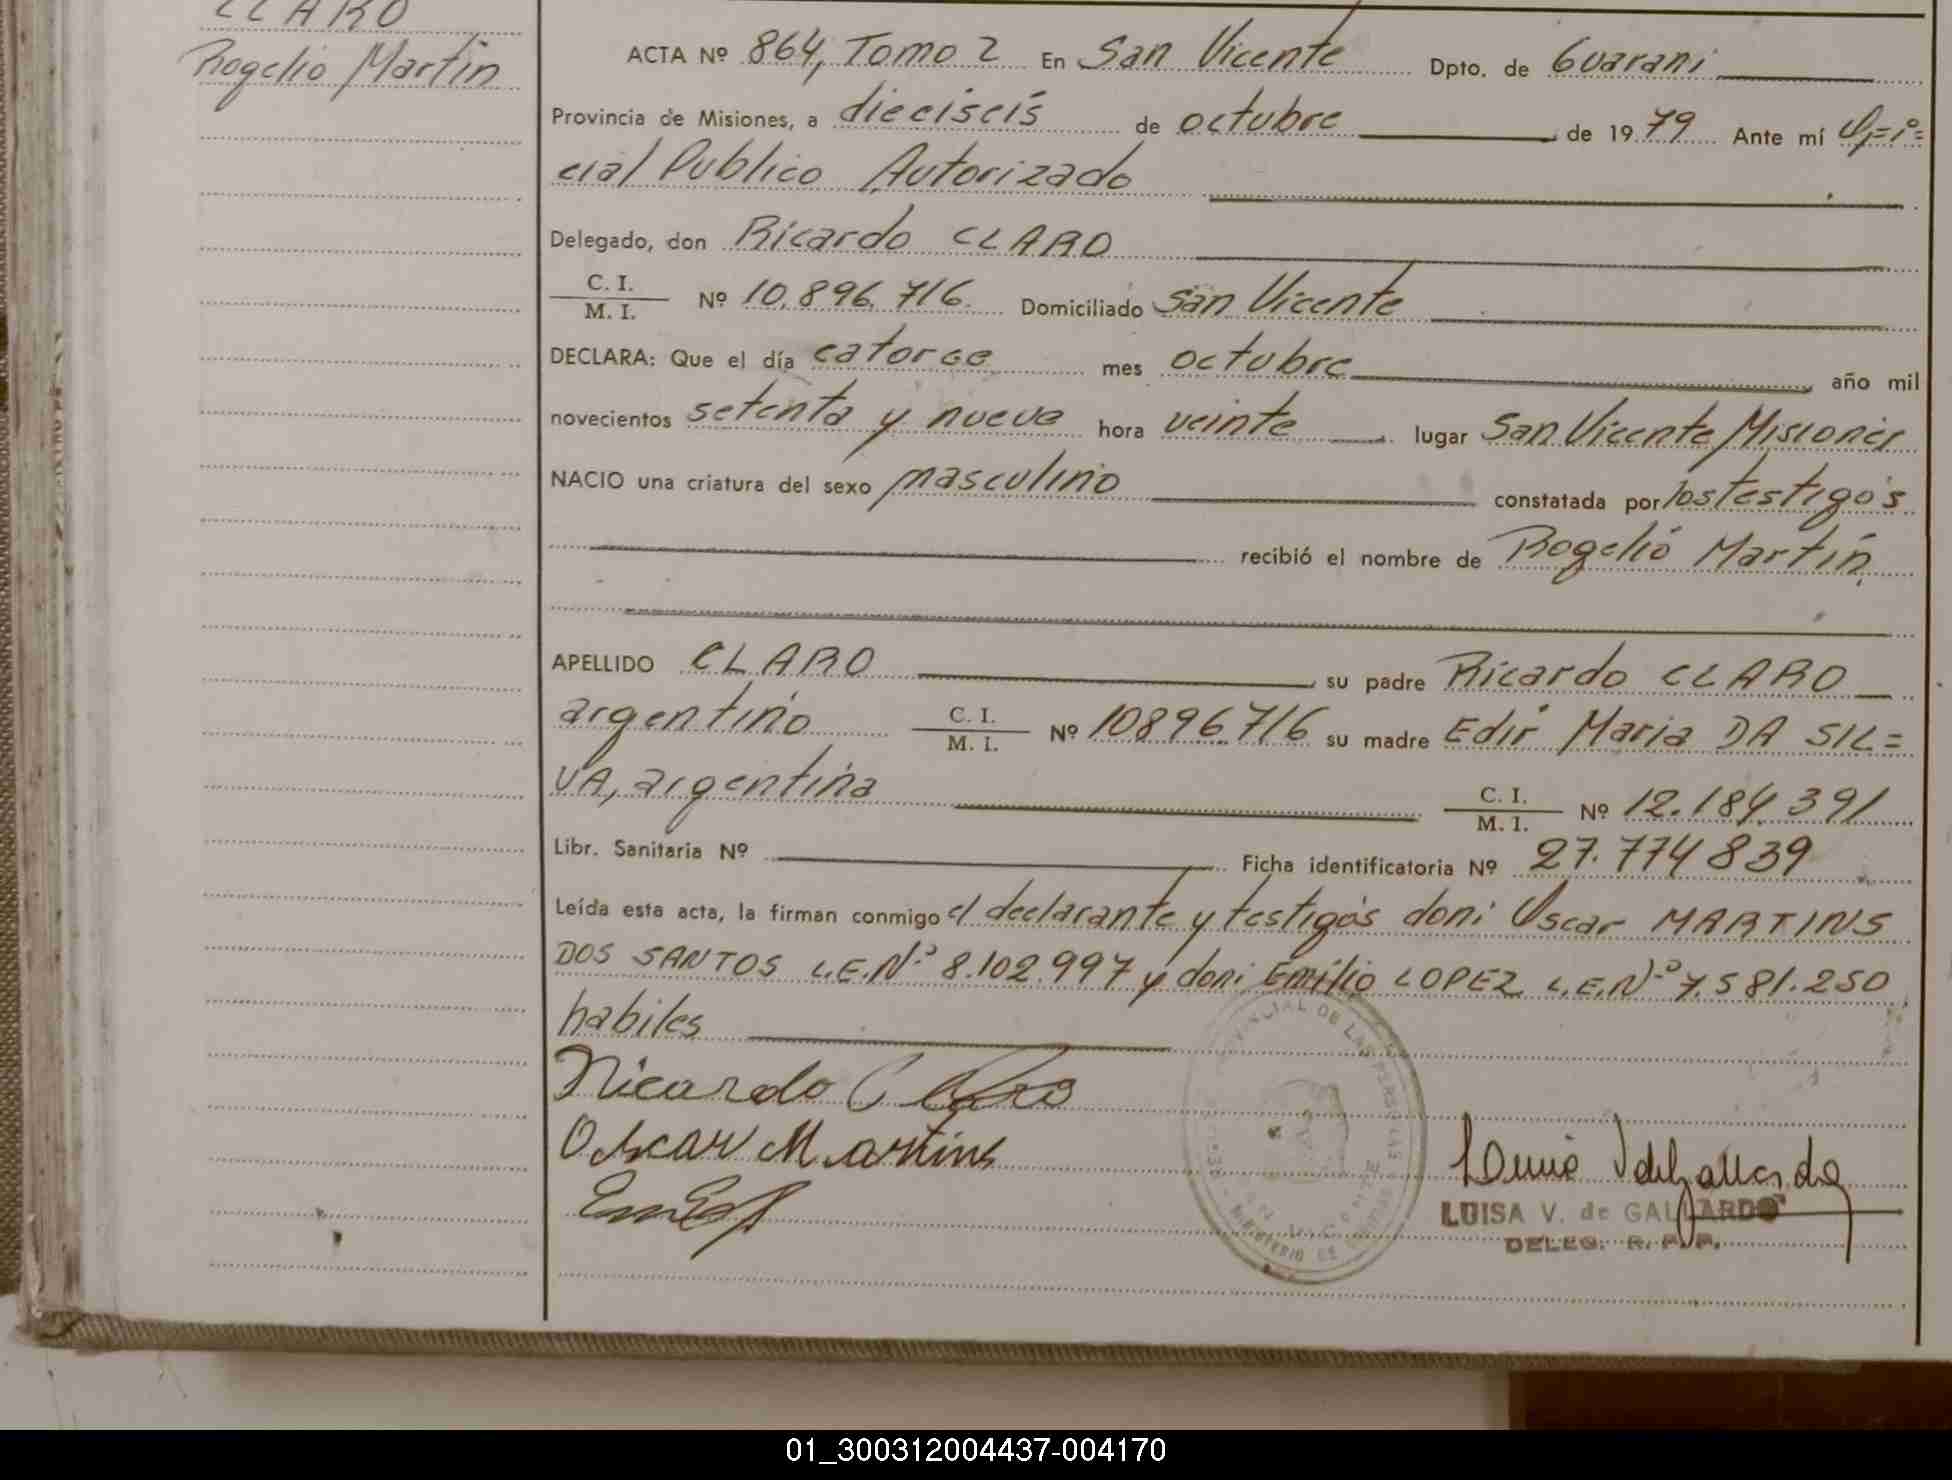 CLARO
Rogelio Martin
ACTA Nº 864, Tomo 2 En San Vicente Dpto. de Guarani
Provincia de Misiones, a dieciseis de octubre de 1979 Ante mí Ofi=
cial Publico Autorizado
Delegado, don Ricardo CLARO
C. I.
M. I. Nº 10.896.716 Domiciliado San Vicente
DECLARA: Que el día catorce mes octubre año mil
novecientos setenta y nueve hora veinte lugar San Vicente Misiones
NACIO una criatura del sexo masculino constatada por los testigos
recibió el nombre de Rogelio Martin
APELLIDO CLARO su padre Ricardo CLARO
argentino C. I. M. I. Nº 10896716 su madre Edir Maria DA SIL=
VA, argentina C. I. M. I. Nº 12.184.391
Libr. Sanitaria Nº Ficha identificatoria Nº 27.774839
Leída esta acta, la firman conmigo el declarante y testigos don: Oscar MARTINS
DOS SANTOS L.E.Nº 8.102.997 y don: Emilio LOPEZ L.E.Nº 7.581.250
habiles
Ricardo Claro
Oscar Martins
LUISA V. de GALLARDO
DELEG. R. P. P.
01_300312004437-004170